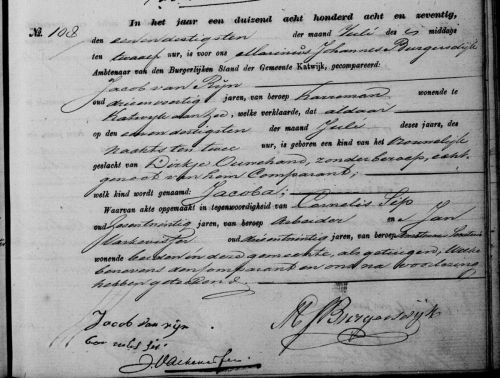 No. 108
In het jaar een duizend acht honderd acht en zeventig,
den eenendertigsten der maand Juli des middags
ten twaalf uur, is voor ons Marinus Johannes Burgersdijk
Ambtenaar van den Burgerlijken Stand der Gemeente Katwijk, gecompareerd:
Jacob van Rijn
oud jaren, van beroep wonende te
Katwijk aan Zee, welke verklaarde, dat aldaar
op den eenendertigsten der maand Juli dezes jaars, des
nachts ten twee uur, is geboren een kind van het
geslacht van Dirkje Ouwehand, zonder beroep, echt-
genoot van hem Comparant;
welk kind wordt genaamd: Jacoba;
Waarvan akte opgemaakt in tegenwoordigheid van Cornelis
oud jaren, van beroep Arbeider en Jan
oud jaren, van beroep
wonende beiden in deze gemeente, als getuigen, welke
benevens den Comparant en ons na voorlezing
hebben geteekend.
Jacob van rijn
MJBurgersdijk